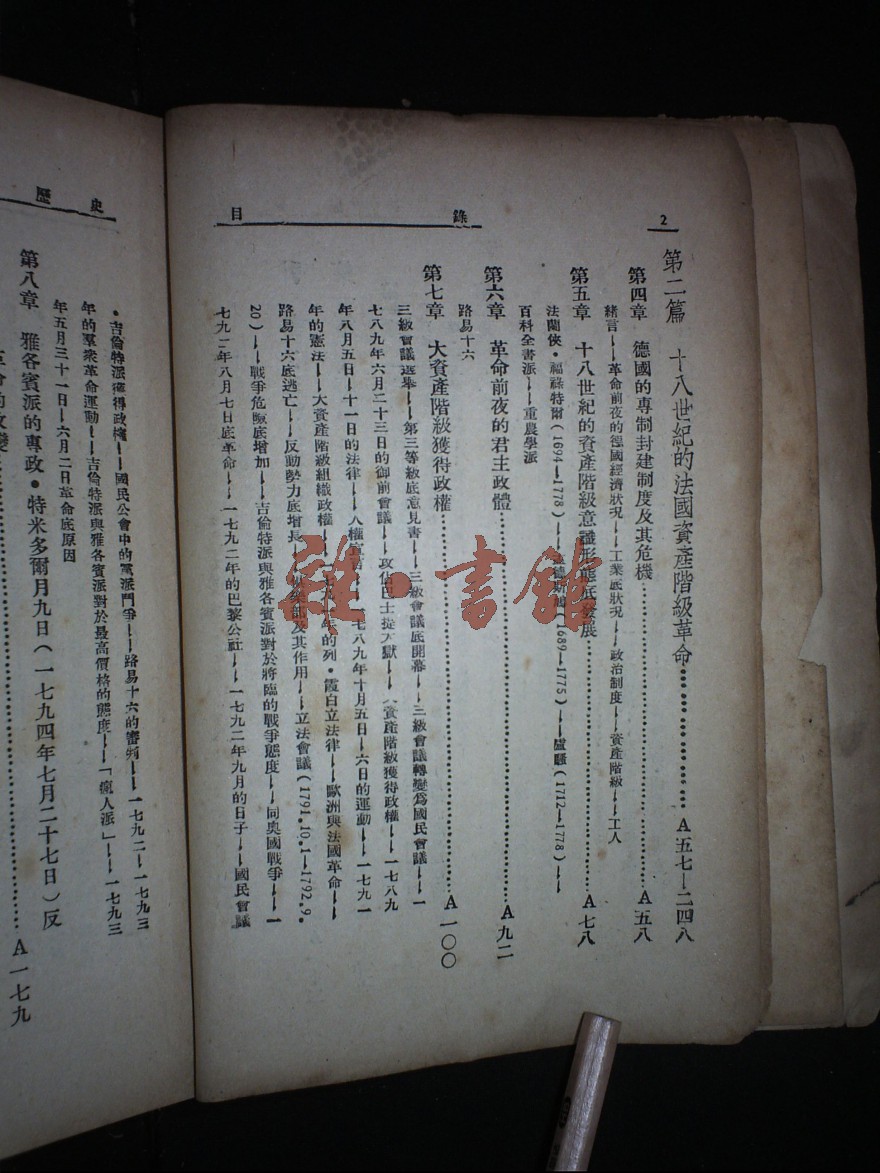 2
錄 目
第二篇 十八世紀的法國資產階級革命………………A五七—二四八
第四章 德國的專制封建制度及其危機………………A五八
緒言——革命前夜的德國經濟狀況——工業底狀況——政治制度——資產階級——工人
第五章 十八世紀的資產階級意識形態底發展………………A七八
法蘭俠·福祿特爾(1694—1778)—— (1689—1775)——盧騷(1712—1778)——
百科全書派——重農學派
第六章 革命前夜的君主政體………………A九二
路易十六
第七章 大資產階級獲得政權………………A一〇〇
三級會議選舉——第三等級底意見書——三級會議底開幕——三級會議轉變爲國民會議——一
七八九年六月二十三日的御前會議——攻佔巴士提 獄—— 資產階級獲得政權——一七八九
年八月五日—十一日的法律——人權宣 —— 七八九年十月五日—六日的運動——一七九一
年的憲法——大資產階級組織政權—— 年的列·霞白立法律——歐洲與法國革命——
路易十六底逃亡——反動勢力底增長—— 部及其作用——立法會議(1791.10.1—1792.9.
20)——戰爭危險底增加——吉倫特派與雅各賓派對於將臨的戰爭態度——同奧國戰爭——一
七九二年八月七日底革命——一七九二年的巴黎公社——一七九二年九月的日子——國民會議
史 歷
·吉倫特派獲得政權——國民公會中的黨派鬥爭——路易十六的審判——一七九二—一七九三
年的羣衆革命運動——吉倫特派與雅各賓派對於最高價格的態度——「瘋人派」——一七九三
年五月三十一日—六月二日革命底原因
第八章 雅各賓派的專政·特米多爾月九日(一七九四年七月二十七日)反
………………A一七九
雜·書館